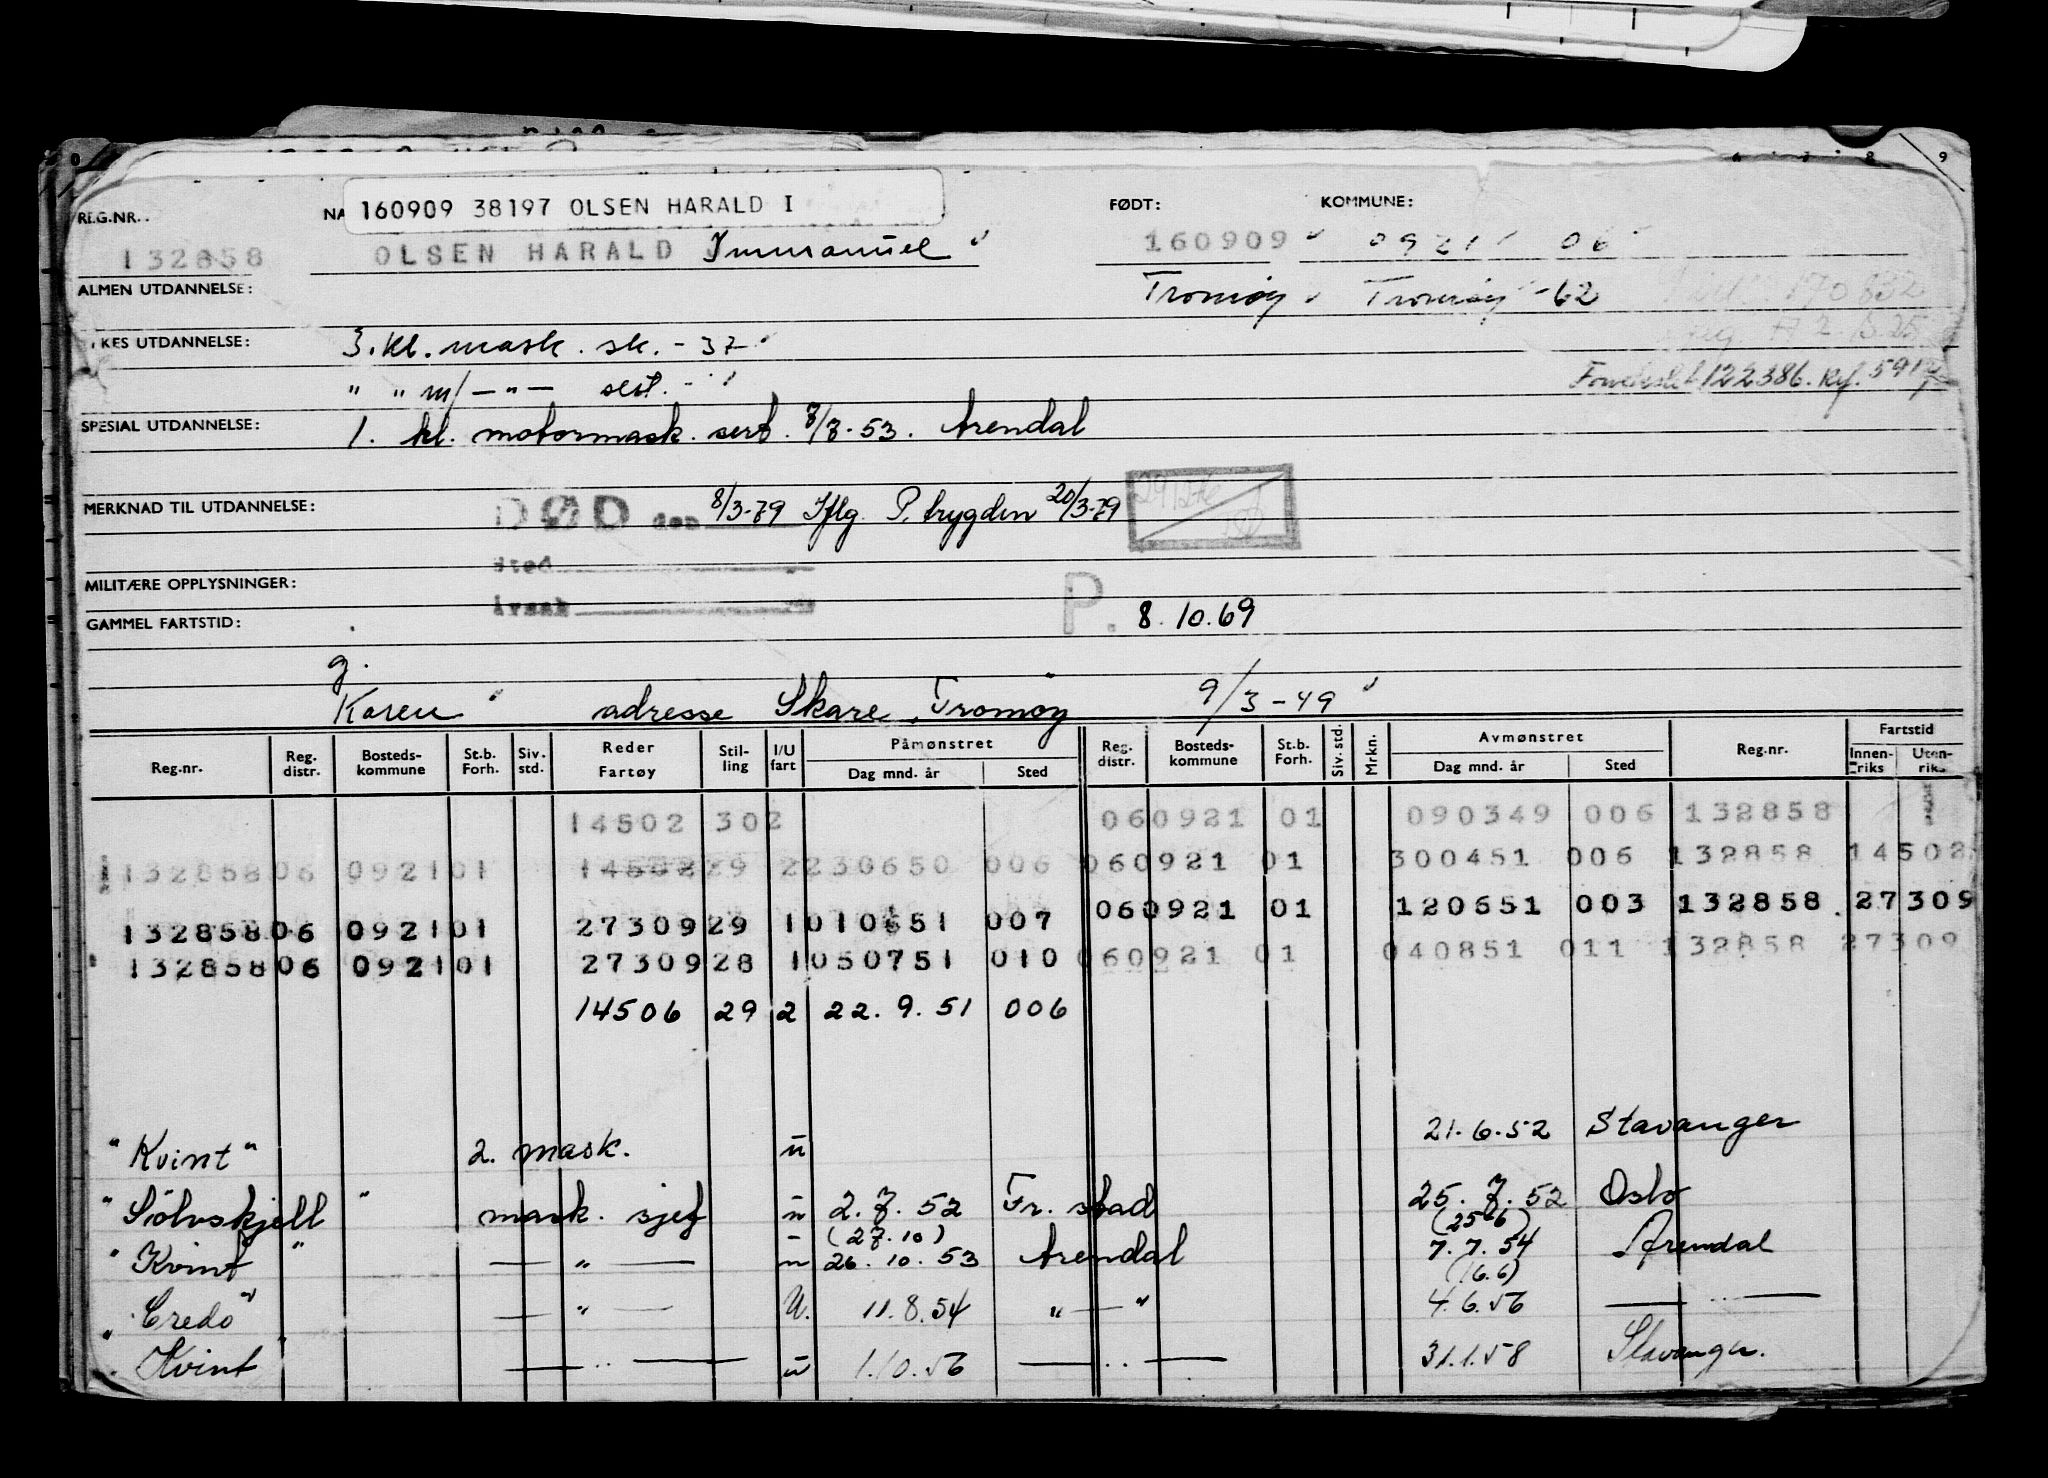 REG.NR. NA 160909 38197 OLSEN HARALD I FØDT: KOMMUNE:
132858 OLSEN HARALD Immanuel 160909 0921 06
ALMEN UTDANNELSE: Tromøy Tromøy -62 170832
KES UTDANNELSE: 3. kl. mask. sk. - 37
" " m/ — " — sert. - " Fondeslut 122386. Rf.
SPESIAL UTDANNELSE: 1. kl. motormask. sert. 7/7-53. Arendal
MERKNAD TIL UTDANNELSE: DØD den 8/3-79 Iflg. P. trygden 20/3-79
Sted
MILITÆRE OPPLYSNINGER:
Årsak
GAMMEL FARTSTID: P. 8.10.69
g.
Karen adresse Skare, Tromøy 9/3-49
Reg.nr. Reg. distr. Bosteds-kommune St.b. Forh. Siv. std. Reder Fartøy Stil-ling I/U fart Påmønstret Dag mnd. år Sted Reg. distr. Bosteds-kommune St.b. Forh. Siv. std. Mrkn. Avmønstret Dag mnd. år Sted Reg.nr. Fartstid Innen-riks Uten-riks
14502 302 060921 01 090349 006 132858
132858 06 0921 01 14502 29 2 230650 006 060921 01 300451 006 132858 14502
132858 06 0921 01 27309 29 1 010651 007 060921 01 120651 003 132858 27309
132858 06 0921 01 27309 28 1 050751 010 060921 01 040851 011 132858 27309
14506 29 2 22. 9. 51 006
"Kvint" 2. mask. u 21.6.52 Stavanger
"Sölvskjell" mask. sjef u 2.7.52 Fr. stad 25.7.52 Oslo
(27.10) (25.6)
"Kvint" — " — u 26.10.53 Arendal 7.7.54 Arendal
(16.6)
"Credo" — " — U. 11.8.54 " — " 4.6.56 — " —
"Kvint" — " — u 1.10.56 — " — 31.1.58 Stavanger.